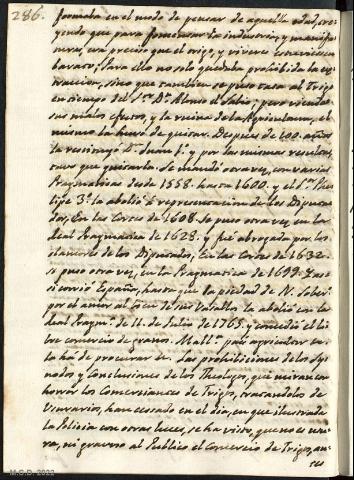 286.
formaba en el modo de pensar de aquella edad, cre-
yendo que para fomentar la industria, y manifac-
turas, era preciso que el trigo, y viveres estuviesen
baratos. Para ello no solo quedaba prohibida la ex-
traccion, sino que tambien se puso tasa al Trigo
en tiempo del S.or D.n Alonso el Sabio; pero viendo
sus malos efectos, y la ruina de la Agricultura, el
mismo la hubo de quitar. Despues de 100. años
la restituyó D. Juan 1.º y por las mismas resultas
tuvo que quitarla. Se mandó otra vez, con varias
Pragmaticas desde 1558. hasta 1600. y el S. Phe-
lipe 3.º la abolió á representacion de los Diputa-
dos, En las Cortes de 1608. Se puso otra vez en la
Real Pragmatica de 1628. y fué abrogada por los
clamores de los Diputados, En las Cortes de 1632.
se puso otra vez, en la Pragmatica de 1699. Y asi
si corrió España, hasta que la piedad de N. Sober.º
por el amor al bien de sus Vasallos la abolió con la
Real Pragm.ca de 11. de Julio de 1765. y concedió el li-
bre comercio de granos. Mall.ca por agricultora
la há de procurar. Las prohibiciones de los Sy-
nodos y Conclusiones de los Theologos, que miraron con
horror los Comerciantes de Trigo, tratandolos de
Usurarios, han cesado en el dia, en que ilustrada
la Policia con otras luces, se ha visto, que no es usu-
ra, ni gravoso al Publico el Comercio de Trigo, an-
tes
M.C.D. 2022